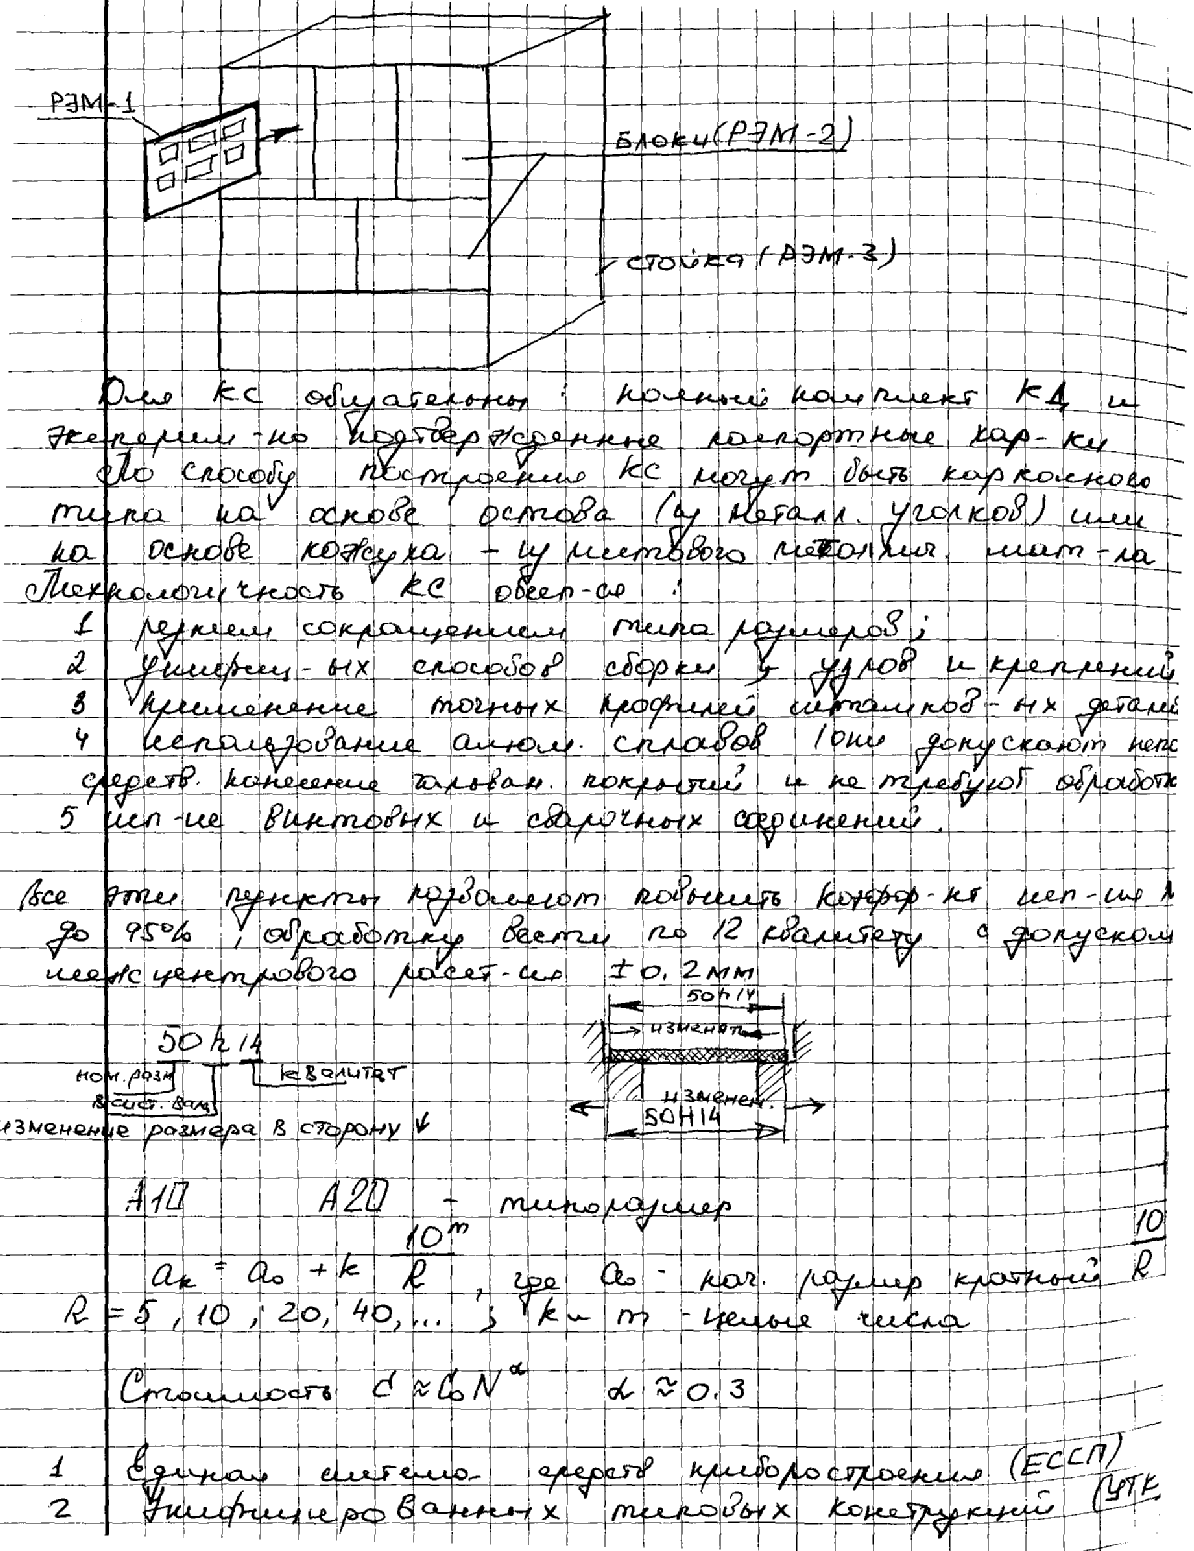 РЭМ-1
БЛОКИ (РЭМ-2)
СТОЙКА (РЭМ-3)
Для КС обязательны : полный комплект КД и
эксперим-но подтвержденные паспортные хар-ки
По способу построения КС могут быть каркасного
типа на основе остова (из металл. уголков) или
на основе кожуха – из листового металлич. мат-ла
Технологичность КС обесп-ся :
1 резким сокращением типа размеров;
2 унифиц-ых способов сборки узлов и креплений
3 применение точных профилей штампов-ых деталей
4 использование алюм. сплавов (они допускают непо
средств. нанесение гальван. покрытий и не требуют обработк
5 исп-ие винтовых и сварочных соединений.
Все эти пункты позволяют повысить коэфф-нт исп-ия М
до 95% , обработку вести по 12 квалитету с допуском
межцентрового расст-ия ± 0.2 мм
50h14
изменен.
50 h 14
ном. разм квалитет
в сист. вала
изменение размера в сторону ↓
изменен.
50H14
А1П А2П – типоразмер
aₖ = a₀ + k 10ᵐ/R , где a₀ – нач. размер кратный 10/R
R = 5, 10; 20, 40, ... ; k и m – целые числа
Стоимость C ≈ C₀ N^α α ≈ 0.3
1 Единая система средств приборостроения (ЕССП)
2 Унифицированных типовых конструкций (УТК